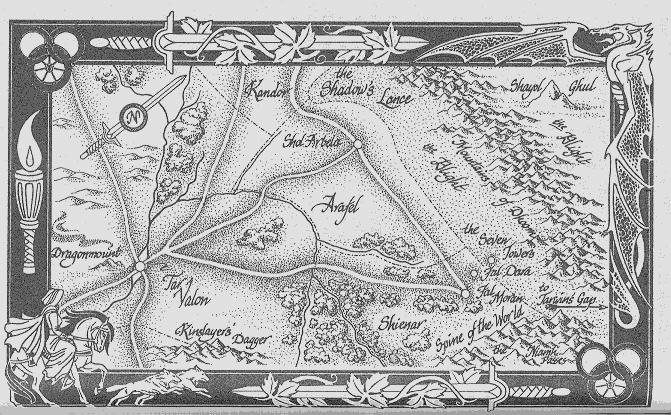 Kandor
the
Shadow's
Lance
Shayol Ghul
N
Shol Arbela
the Blight
the Blight
Mountains
of Dhoom
Arafel
the
Seven
Towers
Dragonmount
Fal Dara
Tar
Valon
Fal Moran
to
Tarwin's Gap
Shienar
Spine of the World
Kinslayer's Dagger
the Niamh
Passes